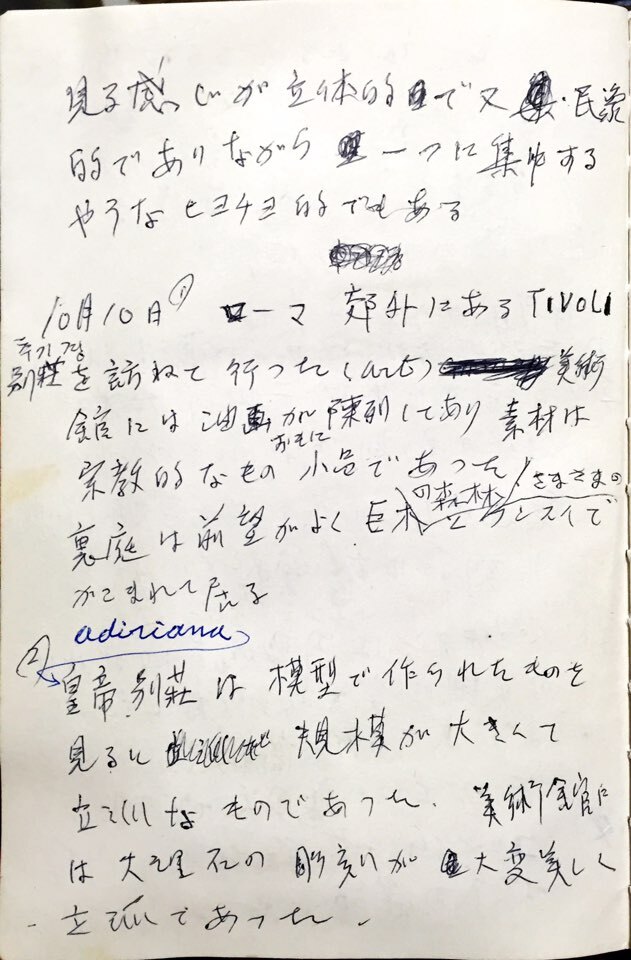 見る感じが立体的で又・民衆
的でありながら一つに集中する
やうなヒヨチヨ的でもある
10月10日 ① ローマ 郊外にあるTIVOLI
별장
別荘を訪ねて行つた(art) 美術
館には油画が陳列してあり 素材は
おもに
宗教的なもの 小品であつた
の森林 さまざまの
裏庭は前望がよく巨木とフンスイで
かこまれて居る
adiriana
② 皇帝別荘は模型で作られたものを
見るに 規模が大きくて
立派なものであつた. 美術館に
は大理石の彫刻が大変美しく
立派であつた.